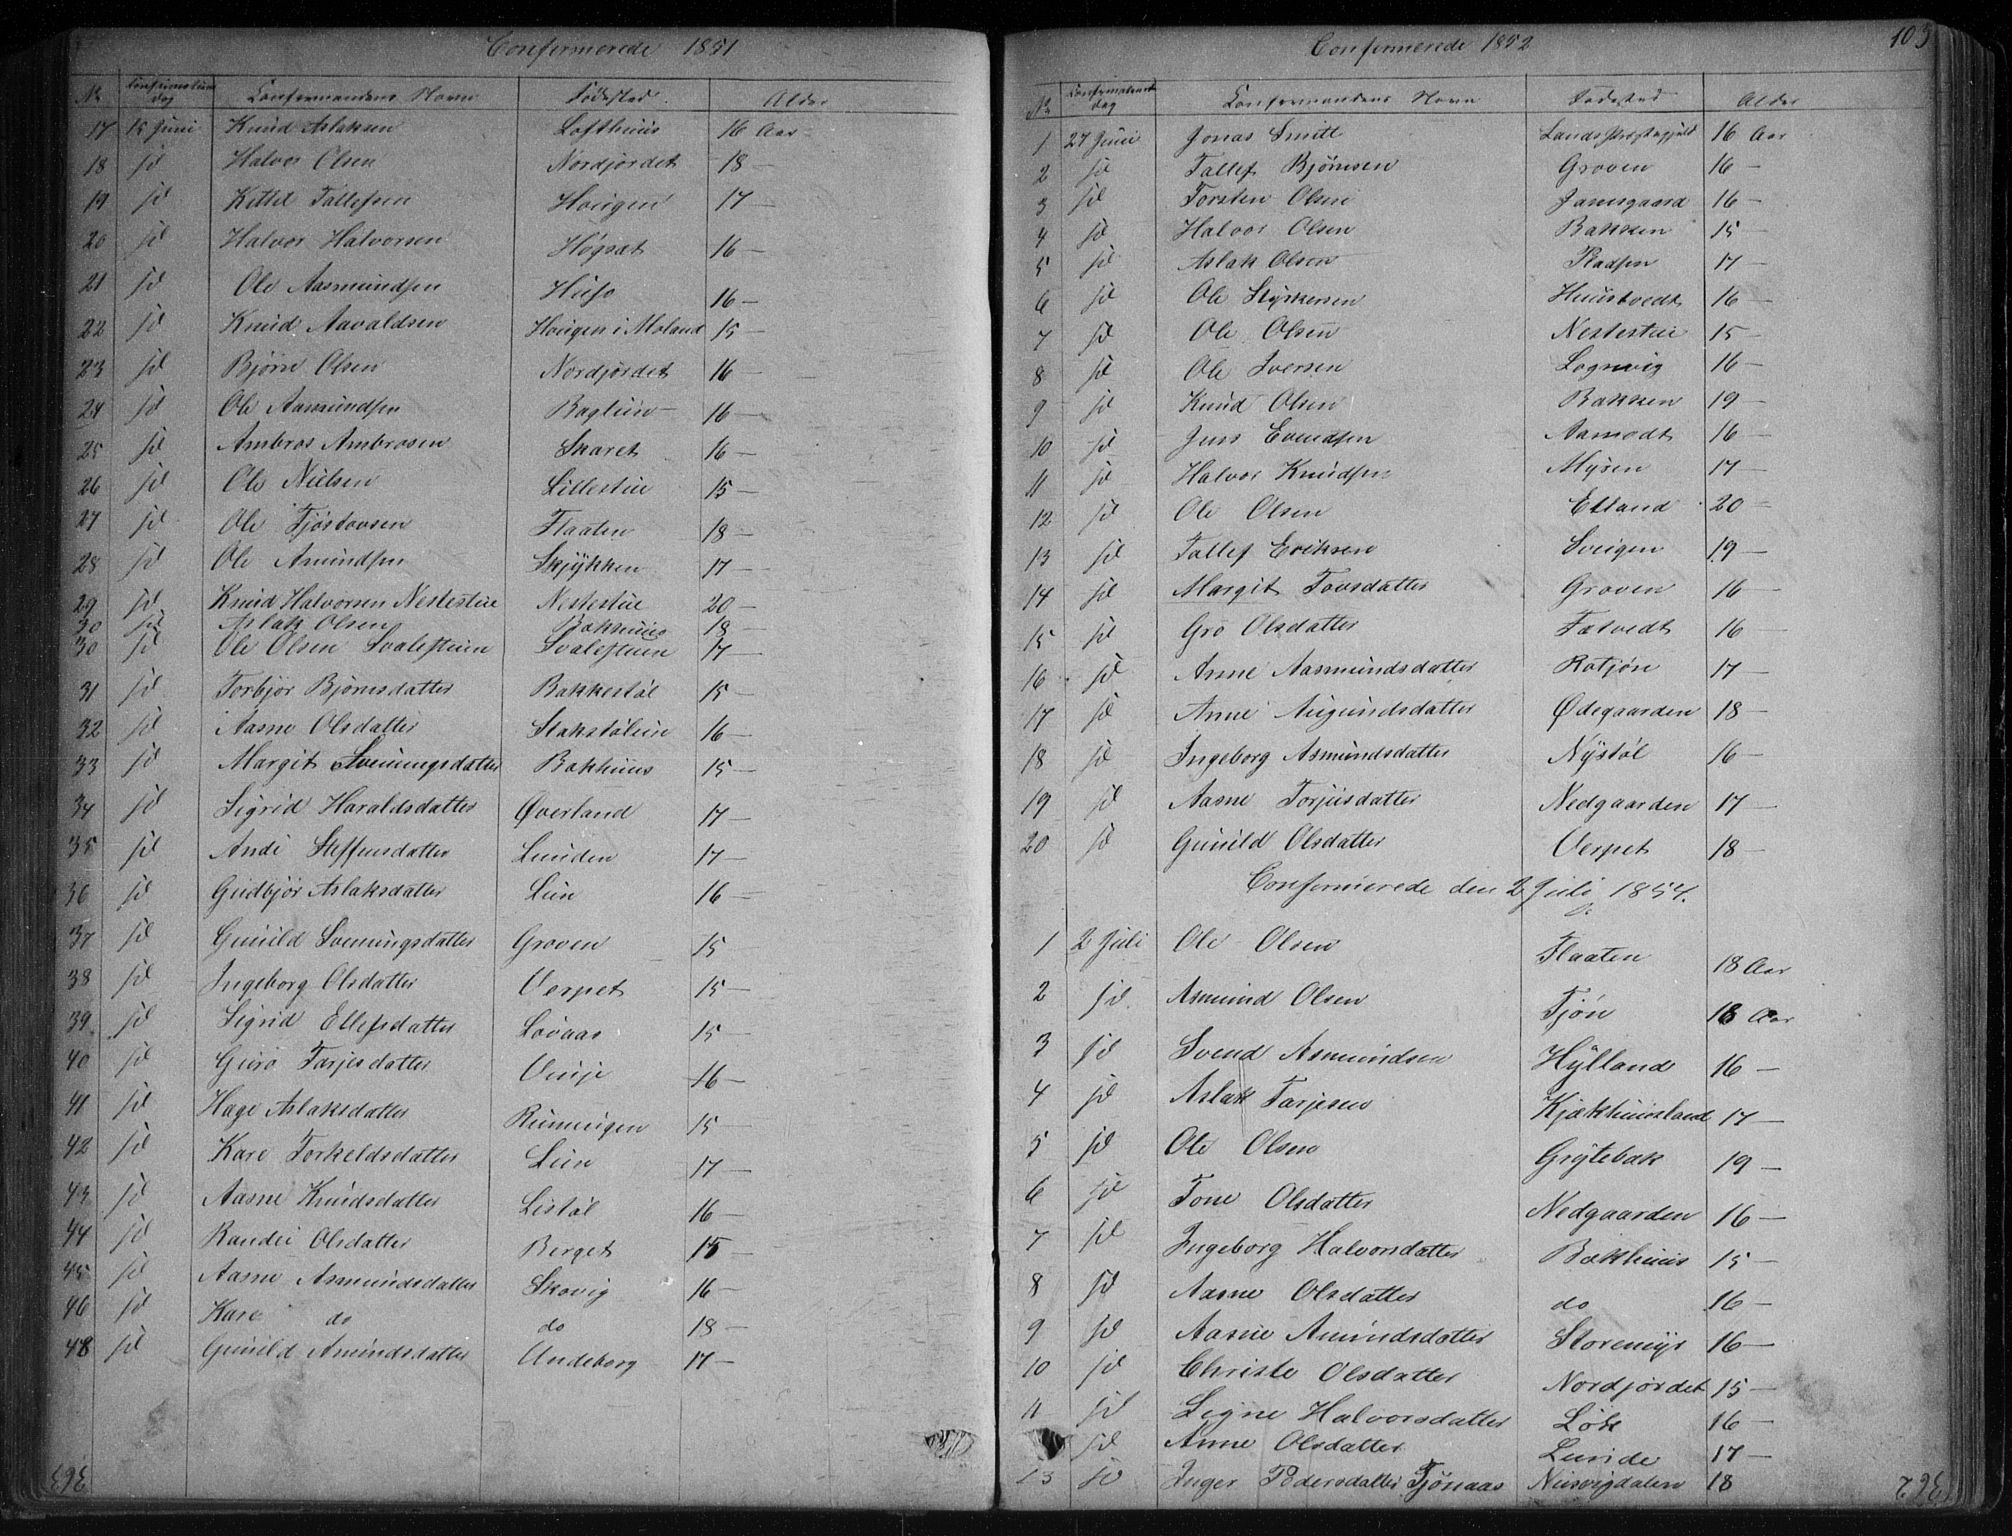 Confermerede 1851
No Confirmations dag Confermandens Navn Fødested Alder
17 15 Juni Knud Aslaksen Lofthuus 16 Aar
18 id Halvor Olsen Nordjordet 18 —
19 id Kittil Tallefsen Haugen 17 —
20 id Halvor Halvorsen Høgsæt 16 —
21 id Ole Aasmundsen 16 —
22 id Knud Aavaldsen Haugen i Moland 15 —
23 id Bjørn Olsen Nordjordet 16 —
24 id Ole Aasmundsen Bagtuun 16 —
25 id Ambros Ambrosen Skaret 16 —
26 id Ole Nielsen Lillestue 15 —
27 id Ole Tjøstovsen Flaaten 18 —
28 id Ole Amundsen Skjykken 17 —
29 id Knud Halvorsen Nestestue Nestestue 20 —
30 id Aslak Olsen Bakhuus 18 —
30 id Ole Olsen Svalestuen Svalestuen 17 —
31 id Torbjør Bjørnsdatter Bakkestøl 15 —
32 id Aasne Olsdatter Stakstølen 16 —
33 id Margit Sveinungsdatter Bakhuus 15 —
34 id Sigrid Haraldsdatter Øverland 17 —
35 id Andi Steffensdatter Lunden 17 —
36 id Gudbjør Aslaksdatter Lun 16 —
37 id Gunild Sveinungsdatter Groven 15 —
38 id Ingeborg Olsdatter Verpet 15 —
39 id Sigrid Ellefsdatter Lovaas 15 —
40 id Guro Tarjesdatter Vinje 16 —
41 id Hage Aslaksdatter Runningen 15 —
42 id Kare Torkeldsdatter Lun 17 —
43 id Aasne Knudsdatter Listøl 16 —
44 id Randei Olsdatter Berget 15 —
45 id Aasne Asmundsdatter Skovig 16 —
46 id Kare do do 18 —
48 id Gunild Amundsdatter Undeborg 17 —
Confermerede 1852
105
No Confirmations dag Confermandens Navn Fødested Alder
1 27 Juni Jonas Smitt Lands Præstegjeld 16 Aar
2 id Tallef Bjørnsen Groven 16 —
3 id Torsten Olsen Jamsgaard 16 —
4 id Halvor Olsen Bakken 15 —
5 id Aslak Olsen Pladsen 17 —
6 id Ole Styrkersen Huustvedt 16 —
7 id Ole Olsen Nestestue 15 —
8 id Ole Iversen Lognvig 16 —
9 id Knud Olsen Bakken 19 —
10 id Jens Evendsen Aamodt 16 —
11 id Halvor Knudsen Mysen 17 —
12 id Ole Olsen Etland 20 —
13 id Tallef Eriksen Sveigen 19 —
14 id Margit Tovsdatter Groven 16 —
15 id Gro Olsdatter Tatvedt 16 —
16 id Anne Aasmundsdatter Rotjøn 17 —
17 id Anne Augundsdatter Ødegaarden 18 —
18 id Ingeborg Asmundsdatter Nystøl 16 —
19 id Aasne Torjusdatter Nedgaarden 17 —
20 id Gunild Olsdatter Verpet 18 —
Confermerede den 2 Juli 1854.
1 2 Juli Ole Olsen Flaaten 18 Aar
2 id Asmund Olsen Tjøn 16 Aar
3 id Svend Asmundsen Hylland 16 —
4 id Aslak Tarjesen Kjækhuusland 17 —
5 id Ole Olsen Grytebæk 19 —
6 id Tone Olsdatter Nedgaarden 16 —
7 id Ingeborg Halvorsdatter Bækhuus 15 —
8 id Aasne Olsdatter do 16 —
9 id Aasne Amundsdatter Storemyr 16 —
10 id Christe Olsdatter Nordjordet 15 —
11 id Signe Halvorsdatter 16 —
id Anne Olsdatter Lunde 17 —
13 id Inger Pedersdatter Tjønaas 18